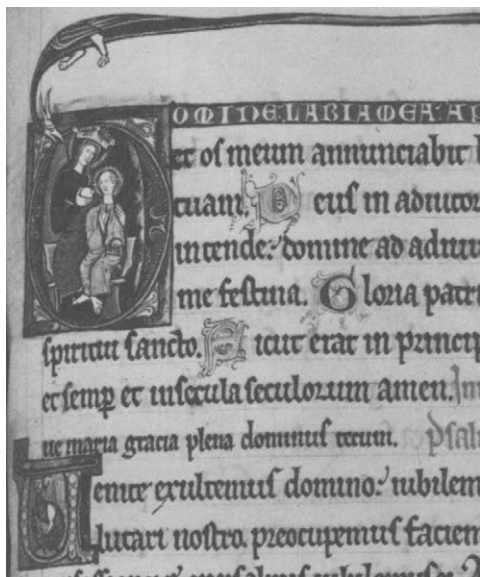 DOMINE LABIA MEA AP
et os meum annunciabit l
tuam. Deus in adiutor
intende: domine ad adiuu
me festina. Gloria patri
spiritui sancto. Sicut erat in princip
et semp et in secula seculorum amen.
ue maria gracia plena dominus tecum. psal
Uenite exultemus domino: iubilem
lutari nostro. preocupemus faciem